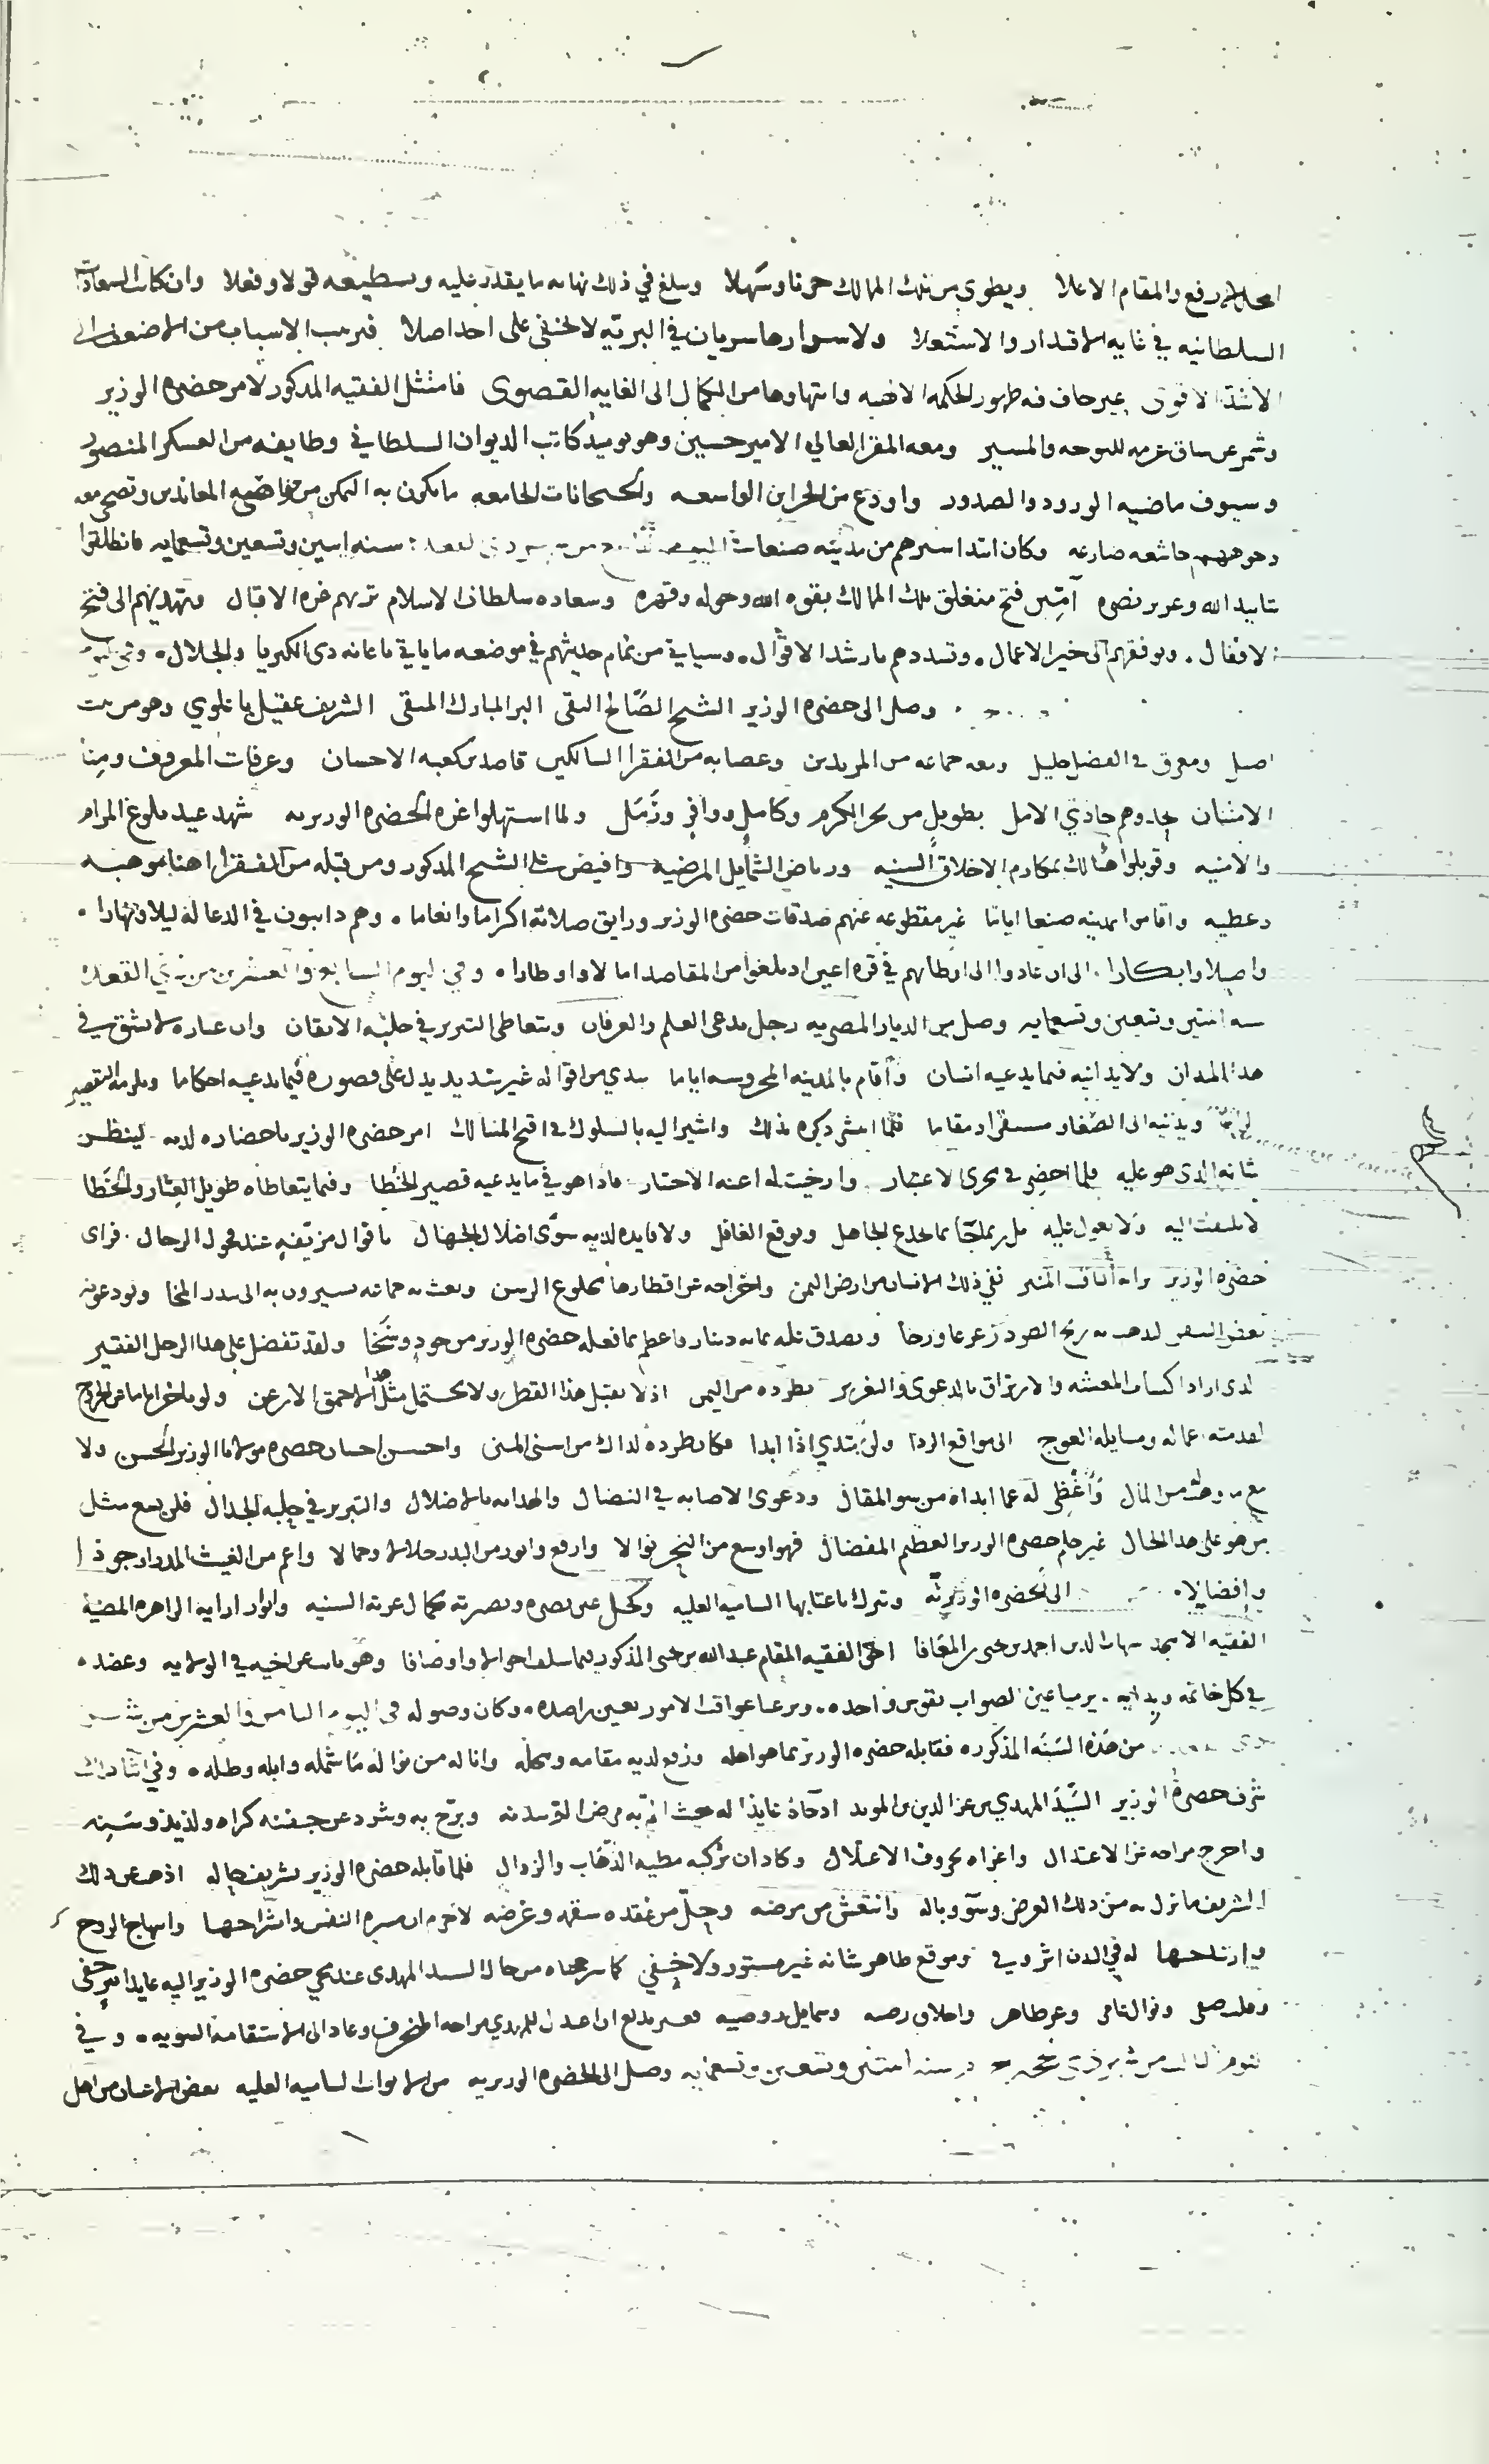 الارفع والمقام الاعلا ويطوى من تلك الممالك حزنا وسهلا وسلغ في ذلك نهايه ما يقدر عليه وسسطيعه قولا وفعلا وان كانت السعادات
السلطانيه في غايه الاقتدار والاستعلا ولاسرارها سريان في البريه لا يخفى على احد اصلا فترتب الاسباب من الاضعف الى
الاشد الاقوى غير خاف فيه ظهور الحكمه الالهيه وانتهاوها من الكمال الى الغايه القصوى فامتثل الفقيه المذكور لامر حضره الوزير
وشمر عن ساق عزمه للتوجه والمسير ومعه المقر العالي الامير حسين وهو يوميذ كاتب الديوان السلطاني وطايفه من العسكر المنصور
وسيوف ماضيه الورود والصدور واودع من الخزاين الواسعه والجبخانات الجامعه ما يكون به التمكن من المعاندين وتضحى معه
وجوههم خاشعه ضارعه وكان ابتدا سيرهم من مدينه صنعا سنه اثنين وتسعين وتسعمايه فانطلقوا
بتاييد الله وعزيز نصره آمين فتح منغلق تلك الممالك بقوه الله وحوله وقهره وسعاده سلطان الاسلام تريهم غره الاقبال وتهديهم الى فتح
الاقفال . وتوفقهم الى خير الاعمال . وتسددهم بارشد الاقوال . وسياتي من تمام حديثهم في موضعه ما ياتي باعانه ذى الكبريا والجلال .
وصل الى حضره الوزير الشيخ الصالح التقى البر المبارك المتقى الشريف عقيل باعلوي وهو من بيت
اصيل ومعرق في الفضل جليل ومعه جماعه من المريدين وعصابه من الفقرا السالكين قاصدين كعبه الاحسان وعرفات المعروف ومنا
الامتنان يحدوهم حادي الامل بطويل من بحر الكرم وكامل ووافر وزمل ولما استهلوا غره الحضره الوزيريه شهد عيد بلوغ المرام
والامنيه وقوبلوا هنالك بمكارم الاخلاق السنيه ورياض الشمايل المرضيه وافيض على الشيخ المذكور ومن قبله من الفقرا اهنا موهبه
وعطيه واقاموا بمدينه صنعا اياما غير مقطوعه عنهم صدقات حضره الوزير ورايق صلاته اكراما وانعاما . وهم دايبون في الدعا له ليلا ونهارا .
واصيلا وابكارا . الى ان عادوا الى اوطانهم في قره اعين اذ بلغوا من المقاصد امالا واوطارا . وفي اليوم السابع والعشرين من ذي القعده
سنه اثنتين وتسعين وتسعمايه وصل من الديار المصريه رجل يدعى العلم والعرفان ويتعاطى التبريز في حلبه الاتقان وان غباره لا يشق في
هذا الميدان ولا يدانيه فيما يدعيه انسان واقام بالمدينه المحروسه اياما يبدي من اقواله غير سديد يدل على قصوره فيما يدعيه احكاما ويلزمه التقصير
ويدنيه الى الصغار مستقرا ومقاما فلما انتشر ذكره بذلك واشير اليه بالسلوك في اقبح المسالك امر حضره الوزير باحضاره لديه لينظر
شانه الذى هو عليه فلما احضر في مجرى الاعتبار وارخيت له اعنه الاختبار فاذا هو في ما يدعيه قصير الخطا وفيما يتعاطاه طويل العثار والخطا
لا يلتفت اليه ولا يعول عليه بل ربما جآ بما يخدع الجاهل ويوقع الغافل ولا فايده لديه سوى اضلال الجهال باقوال مزيفه عند فحول الرجال . فراى
حضره الوزير نفي ذلك الانسان من ارض اليمن واخراجه عن اقطارها بخلوع الرسن وبعث به جماعه يسيرون به الى بندر المخا ويودعونه
بعض السفن لتذهب به ريح الصود زعزعا ورخا وتصدق عليه بمايه دينار فاعظم بما فعله حضره الوزير من جود وسخا ولقد تفضل على هذا الرجل الفقير
الذى اراد اكتساب المعيشه والارتزاق بالدعوى والتغرير بطرده من اليمن اذ لا يقبل هذا القطر ولا يحتمل مثل هذا الاحمق الارعن ولو تاخر اياما عن الخروج
لقدمته اعماله ومسايله العوج الى مواقع الردا ولن يهتدي اذا ابدا فكان طرده لذاك من اسنى المنن واحسن احسان حضره مولانا الوزير الحسن ولا
من المال واغضى له عما ابداه من سو المقال ودعوى الاصابه في النضال والهدايه بالاضلال والتبريز في حلبه الجدال فلن يسع مثل
من هو على هذا الحال غير حلم حضره الوزير العظيم المفضال فهو اوسع من البحر نوالا وارفع وانور من البدر جلالا وجمالا واعم من الغيث المدرار جودا
وافضالا الى الحضره الوزيريه وتبرك باعتابها الساميه العليه وكحل عين بصره وبصيرته بكمال غرته السنيه وانوار ارايه الزاهره المضيه
الفقيه الامجد شهاب الدين احمد بن يحيى بن المعافا اخى الفقيه المقام عبد الله بن يحيى المذكور فيما سلف احوالا واوصافا وهو نايب عن اخيه في الولايه وعضده
في كل خاتمه وبدايه . يرميا عين الصواب بقوس واحده . ويرعيا عواقب الامور بعين راصده . وكان وصوله في اليوم الثامن والعشرين من شهر
من هذه السنه المذكوره فقابله حضره الوزير بما هو اهله ورفع لديه مقامه ومحله واناله من نواله ما شمله وابله وطله . وفي اثنا ذلك
شرف حضره الوزير السيد المهدي بن عز الدين بن المويد اذ جاه عايدا له حيث الم به مرض اثر ببدنه وبرح به وشرد عن جفنه كراه ولذيذ وسنه
واخرج مزاجه عن الاعتدال واغراه بحروف الاعتلال وكاد ان يركبه مطيه الذهاب والزوال فلما قابله حضره الوزير بشريف حاله اذهب عن ذلك
الشريف ما نزل به من ذلك العرض وسو وباله وانتعش من مرضه وحل من عقده سقمه وغرضه لا جرم ان مسره النفس وانشراحها وابتهاج الروح
وارتياحها له في البدن اثر وفي وموقع ظاهر شانه غير مستور ولا خفي كما شرحناه من حال السيد المهدى عند مجي حضره الوزير اليه عايدا
وعاد الى الاستقامه السويه . وفي
اليوم الثالث من شهر ذي الحجه سنه اثنتين وتسعين وتسعمايه وصل الى الحضره الوزيريه من الابواب الساميه العليه بعض الاعيان من اهل